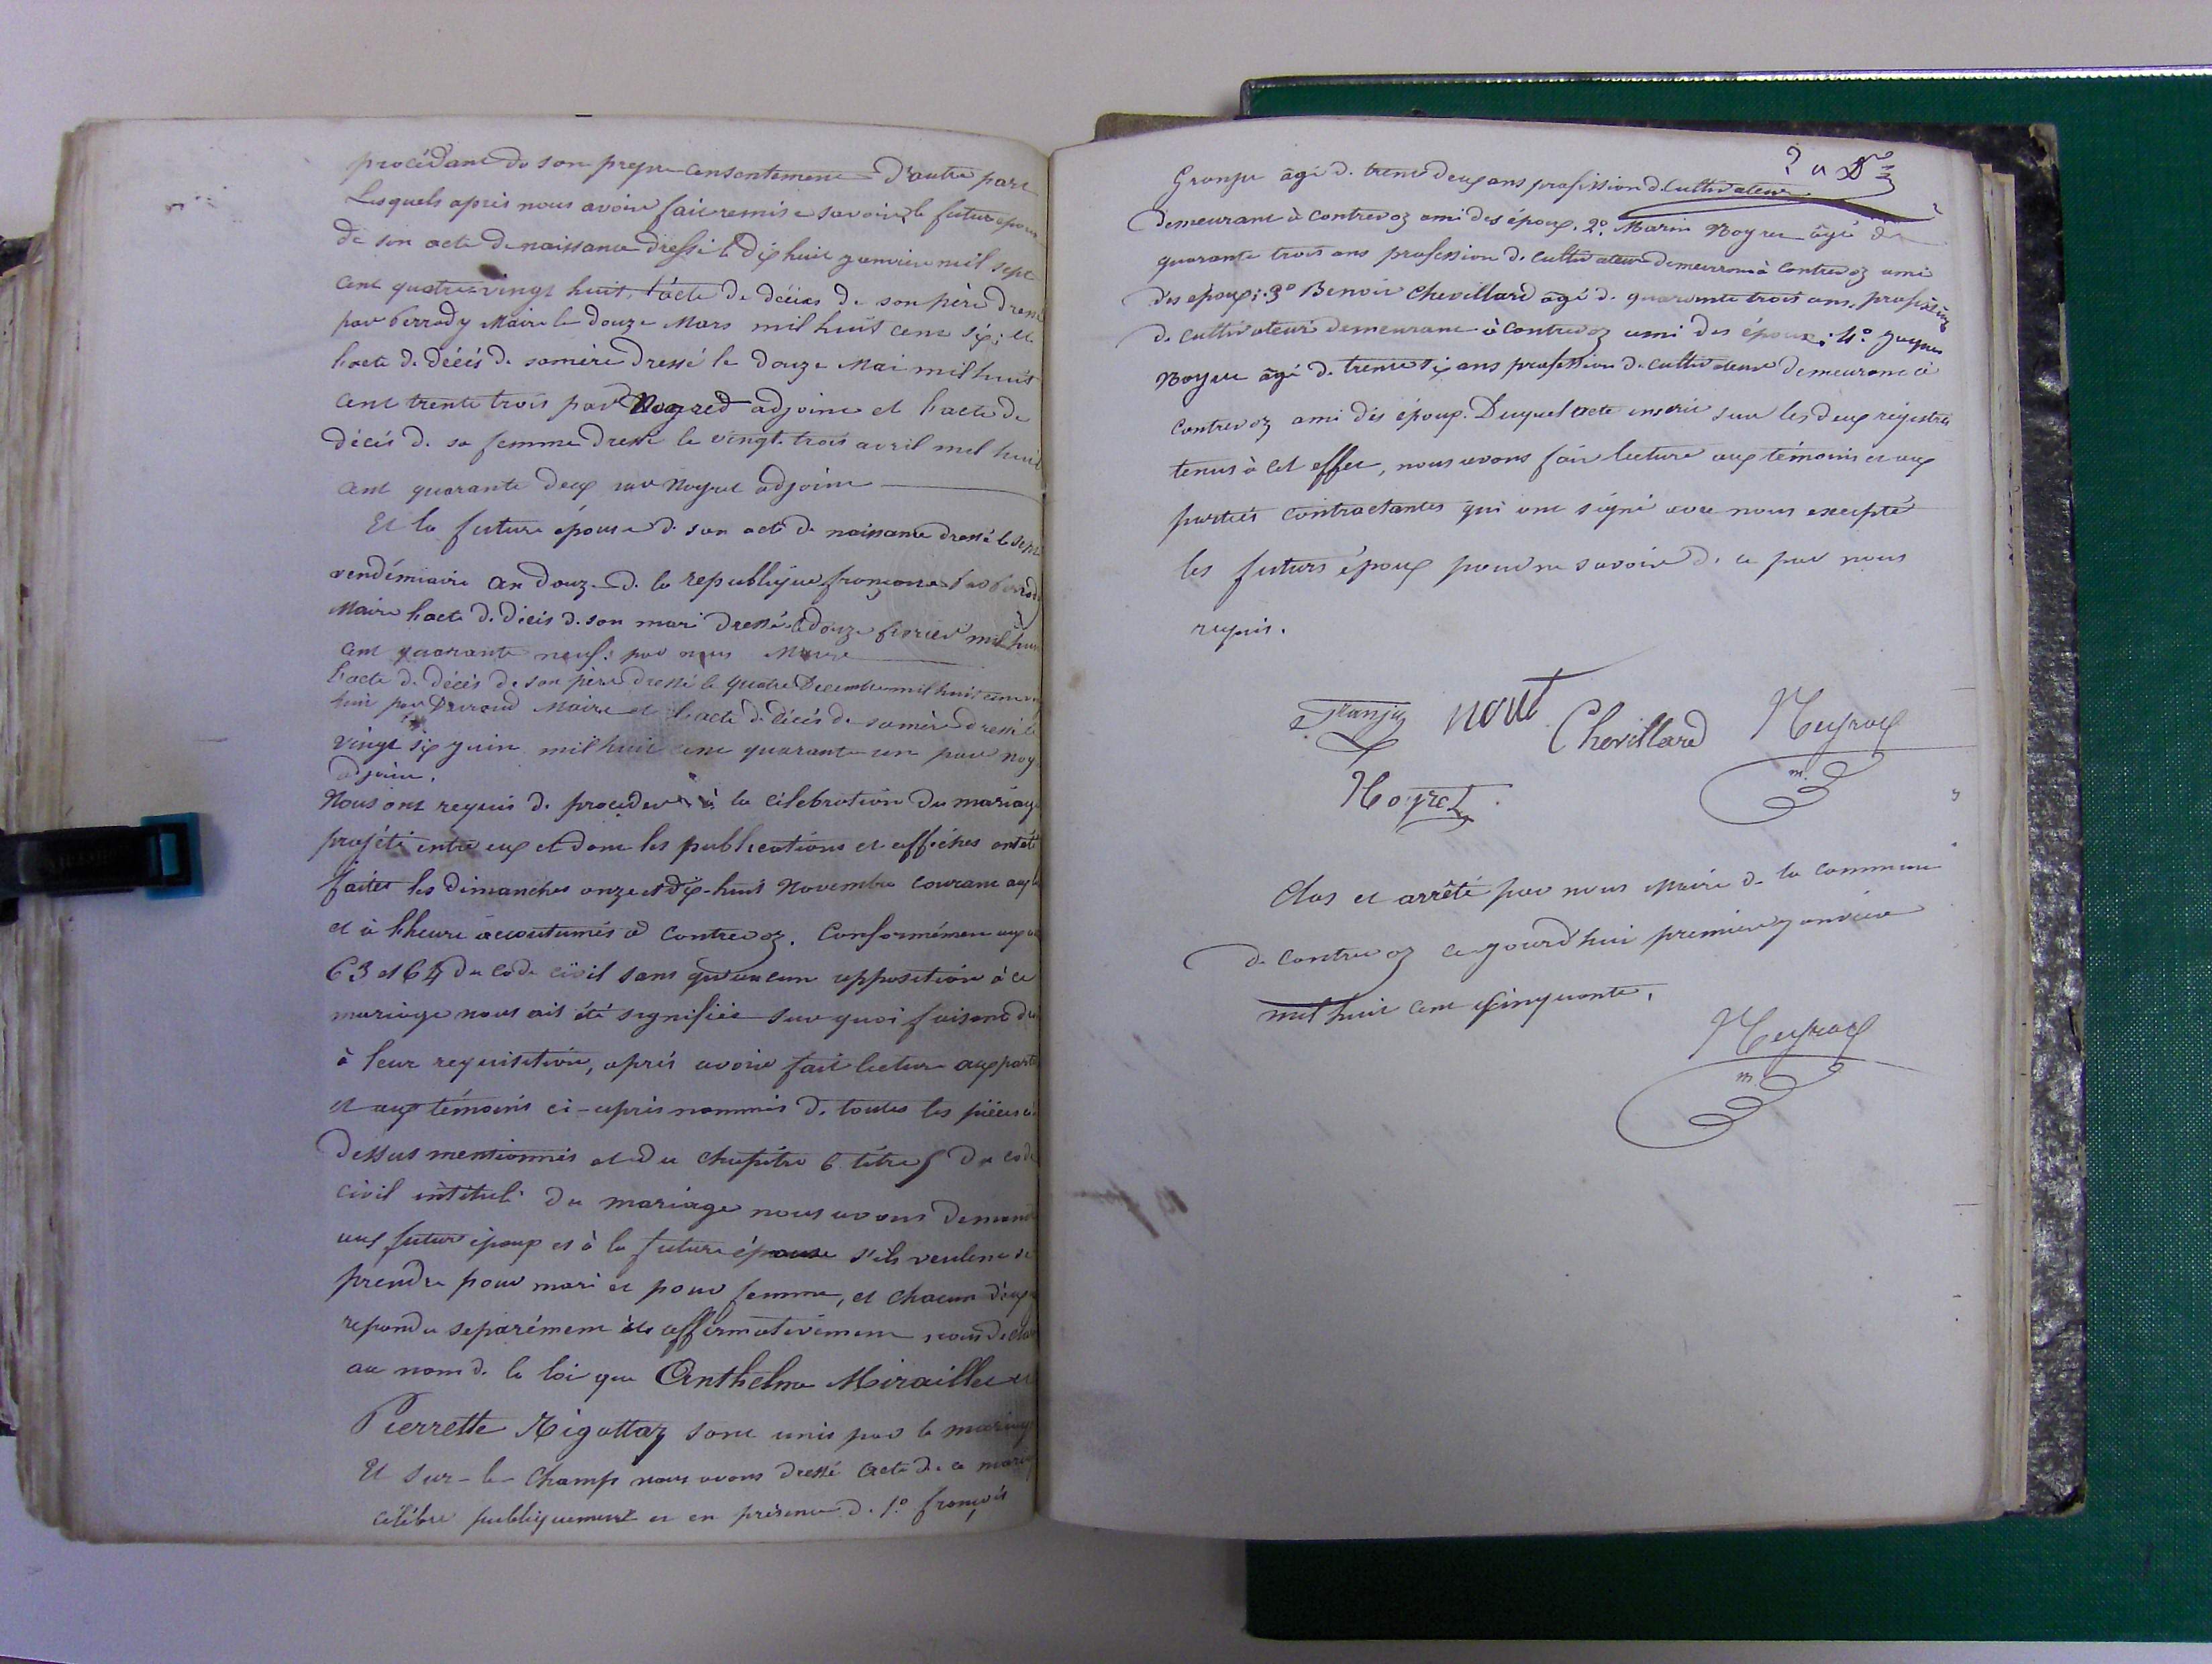 procédant de son propre consentement d'autre part
Lesquels après nous avoir fait remise savoir, le futur époux
de son acte de naissance dressé le dix huit janvier mil sept
cent quatre-vingt huit, l'acte de décès de son père dressé
par Perrody Maire le douze Mars mil huit cent six; et
l'acte de décès de sa mère dressé le douze Mai mil huit
cent trente trois par Noyred adjoint et l'acte de
décès de sa femme dressé le vingt-trois avril mil huit
cent quarante deux par Noyret adjoint
Et la future épouse de son acte de naissance dressé le sept
vendémiaire an douze de la republique française par Perrody
Maire l'acte de décès de son mari dressé le douze février mil huit
cent quarante neuf: par nous Maire
L'acte de décès de son père dressé le quatre Decembre mil huit cent
huit par Maire et l'acte de décès de sa mère dressé le
vingt six juin mil huit cent quarante un par noy
adjoint.
Nous ont requis de procéder à la célébration du mariage
projeté entre eux et dont les publications et affiches ont été
faites les dimanches onze et dix-huit Novembre courant aux
et à l'heure accoutumés à Contrevoz. Conformément aux
63 et 64 du code civil sans qu'aucune opposition à ce
mariage nous ait été signifiée sur quoi faisant
à leur requisition, après avoir fait lecture aux parties
et aux témoins ci-après nommés de toutes les pièces ci
dessus mentionnés et du chapitre 6 titre 5 du code
civil intitulé du mariage nous avons demandé
aux futur époux et à la future épouse s'ils veulent se
prendre pour mari et pour femme, et chacun d'eux
repondu séparément et affirmativement nous déclarons
au nom de la loi que Anthelme Miraillet et
Pierrette Rigottaz sont unis par le mariage
Et sur-le-champ nous avons dressé acte de ce mariage
célébré publiquement et en présence de 1.° françois
Granju âgé de trente deux ans profession de cultivateur
demeurant à Contrevoz ami des époux. 2.° Marin Noyret âgé de
quarante trois ans profession de cultivateur demeurant à Contrevoz ami
des époux; 3.° Benoit Chevillard âgé de quarante trois ans, profession
de cultivateur demeurant à Contrevoz ami des époux; 4.° Jaques
Noyret âgé de trente six ans profession de cultivateur demeurant à
Contrevoz ami des époux. Duquel acte inscrit sur les deux régistres
tenus à cet effet, nous avons fait lecture aux témoins et aux
parties contractantes qui ont signé avec nous excepté
les futurs époux pour ne savoir de ce par nous
requis.
Chevillard Neyroux
Noyret
m.
Clos et arrêté par nous Maire de la commune
de Contrevoz ce jourd'hui premier janvier
mil huit cent cinquante.
Neyroux
m.